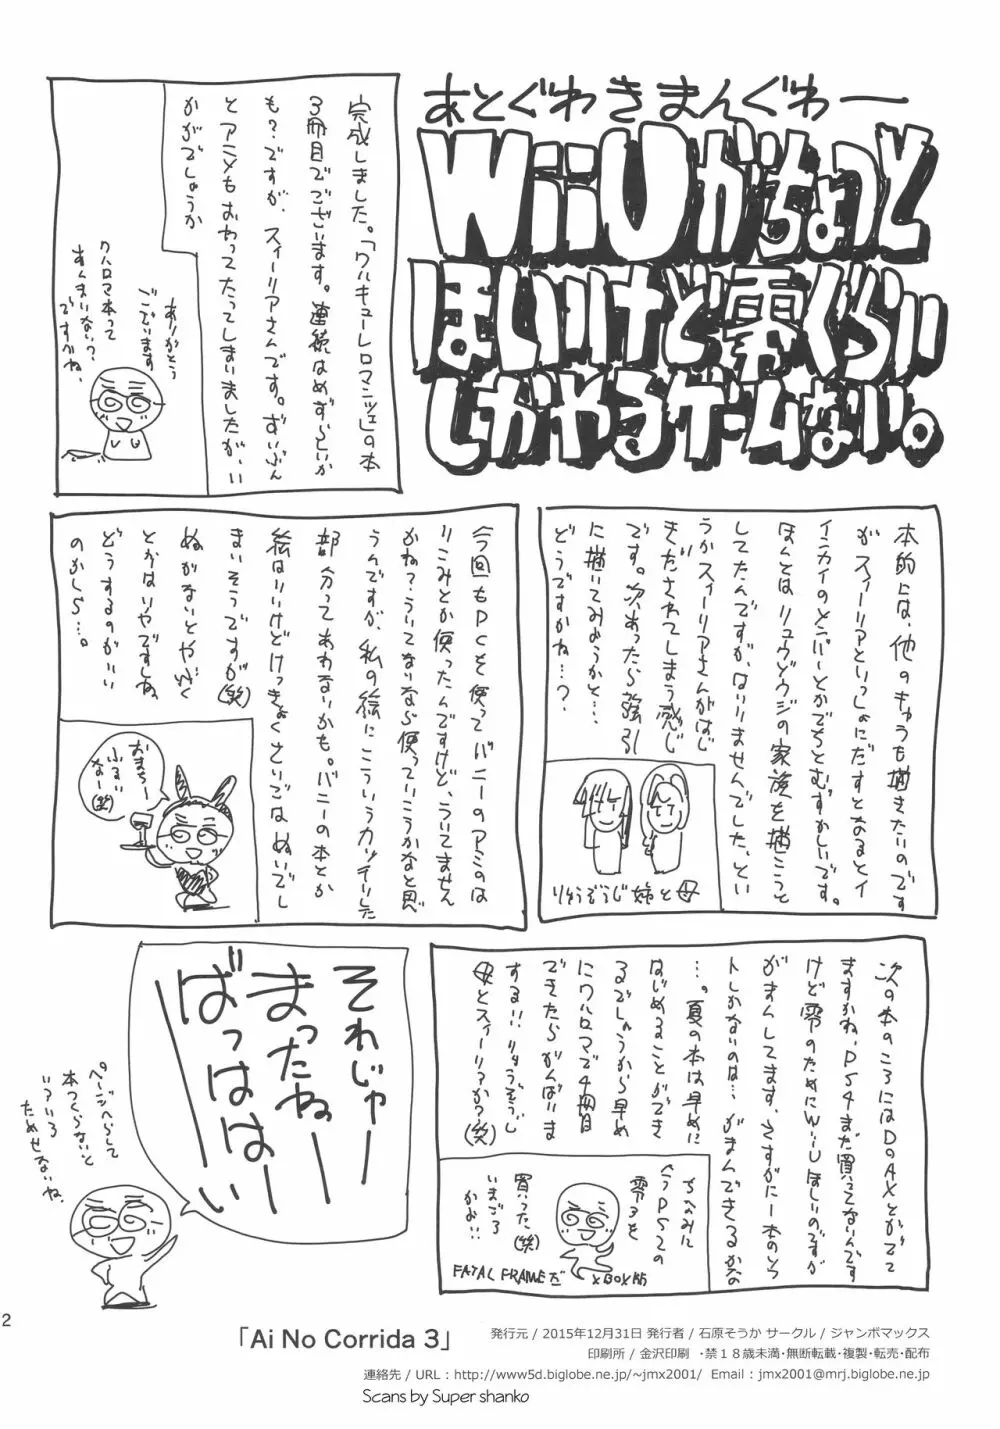 あとぐわきまんぐわー
WiiUがちょっと
ほしいけど零ぐらい
しかやるゲームない。
完成しました。「ワルキューレロマンツェ」の本
3冊目でございます。連続はめずらしいか
も?ですが、スィーリアさんです。ずいぶん
とアニメもおわってたってしまいましたが、い
かがでしょうか
ありがとう
ございます
ワルロマ本って
あんまりない?
ですかね、
本的には、他のキャラも描きたいのです
がスィーリアといっしょにだすとなるとイ
イカイのとバーとかでちとむずかしいです。
ほんとはリュウゾウジの家族を描こうと
してたんですが、はいりませんでした、とい
うかスィーリアさんがはじ
きだされてしまう感じ
です。次、あったら強引
に描いてみようかと…
どうですかね…?
りゅうぞうじ姉と母
今回もPCを使ってバニーのアミのは
りこみとか使ったんですけど、ういてません
かね?ういてないなら使っていこうかなと思
うんですが、私の絵にこういうカッチリした
部分ってあわないかも。バニーの本とか
絵はりいけどけっきょくさいごはぬいでし
まいそうですが(笑)
ぬがないとやぶく
とかはいやですしね
どうするのがいい
のかしら…。
おまえー
ふるい
なー(笑)
次の本のころにはDOAXとかでて
ますかね、PS4まだ買ってないんです
けど零のためにWiiUほしいのですが
がまんしてます、さすがに一本のソフ
トしかないのは…がまんできるかな
…。夏の本は早めに
はじめることができ
るでしょうから早め
にワルロマで4冊目
できたらがんばりま
する!!りゅうぞうじ
母とスィーリアか?(笑)
ちなみに
今ごろPS2の
零3を
買った、(笑)
いまごろ
かよ!!
FATAL FRAMEだ
XBOX版
それじゃー
まったねー
ばっははーい
ページへらして
本つくらないと
いろいろ
ためせないね、
2
「Ai No Corrida 3」
発行元 / 2015年12月31日 発行者 / 石原そうか サークル / ジャンボマックス
印刷所 / 金沢印刷 ・禁18歳未満・無断転載・複製・転売・配布
連絡先 / URL : http://www5d.biglobe.ne.jp/~jmx2001/ Email : jmx2001@mrj.biglobe.ne.jp
Scans by Super shanko